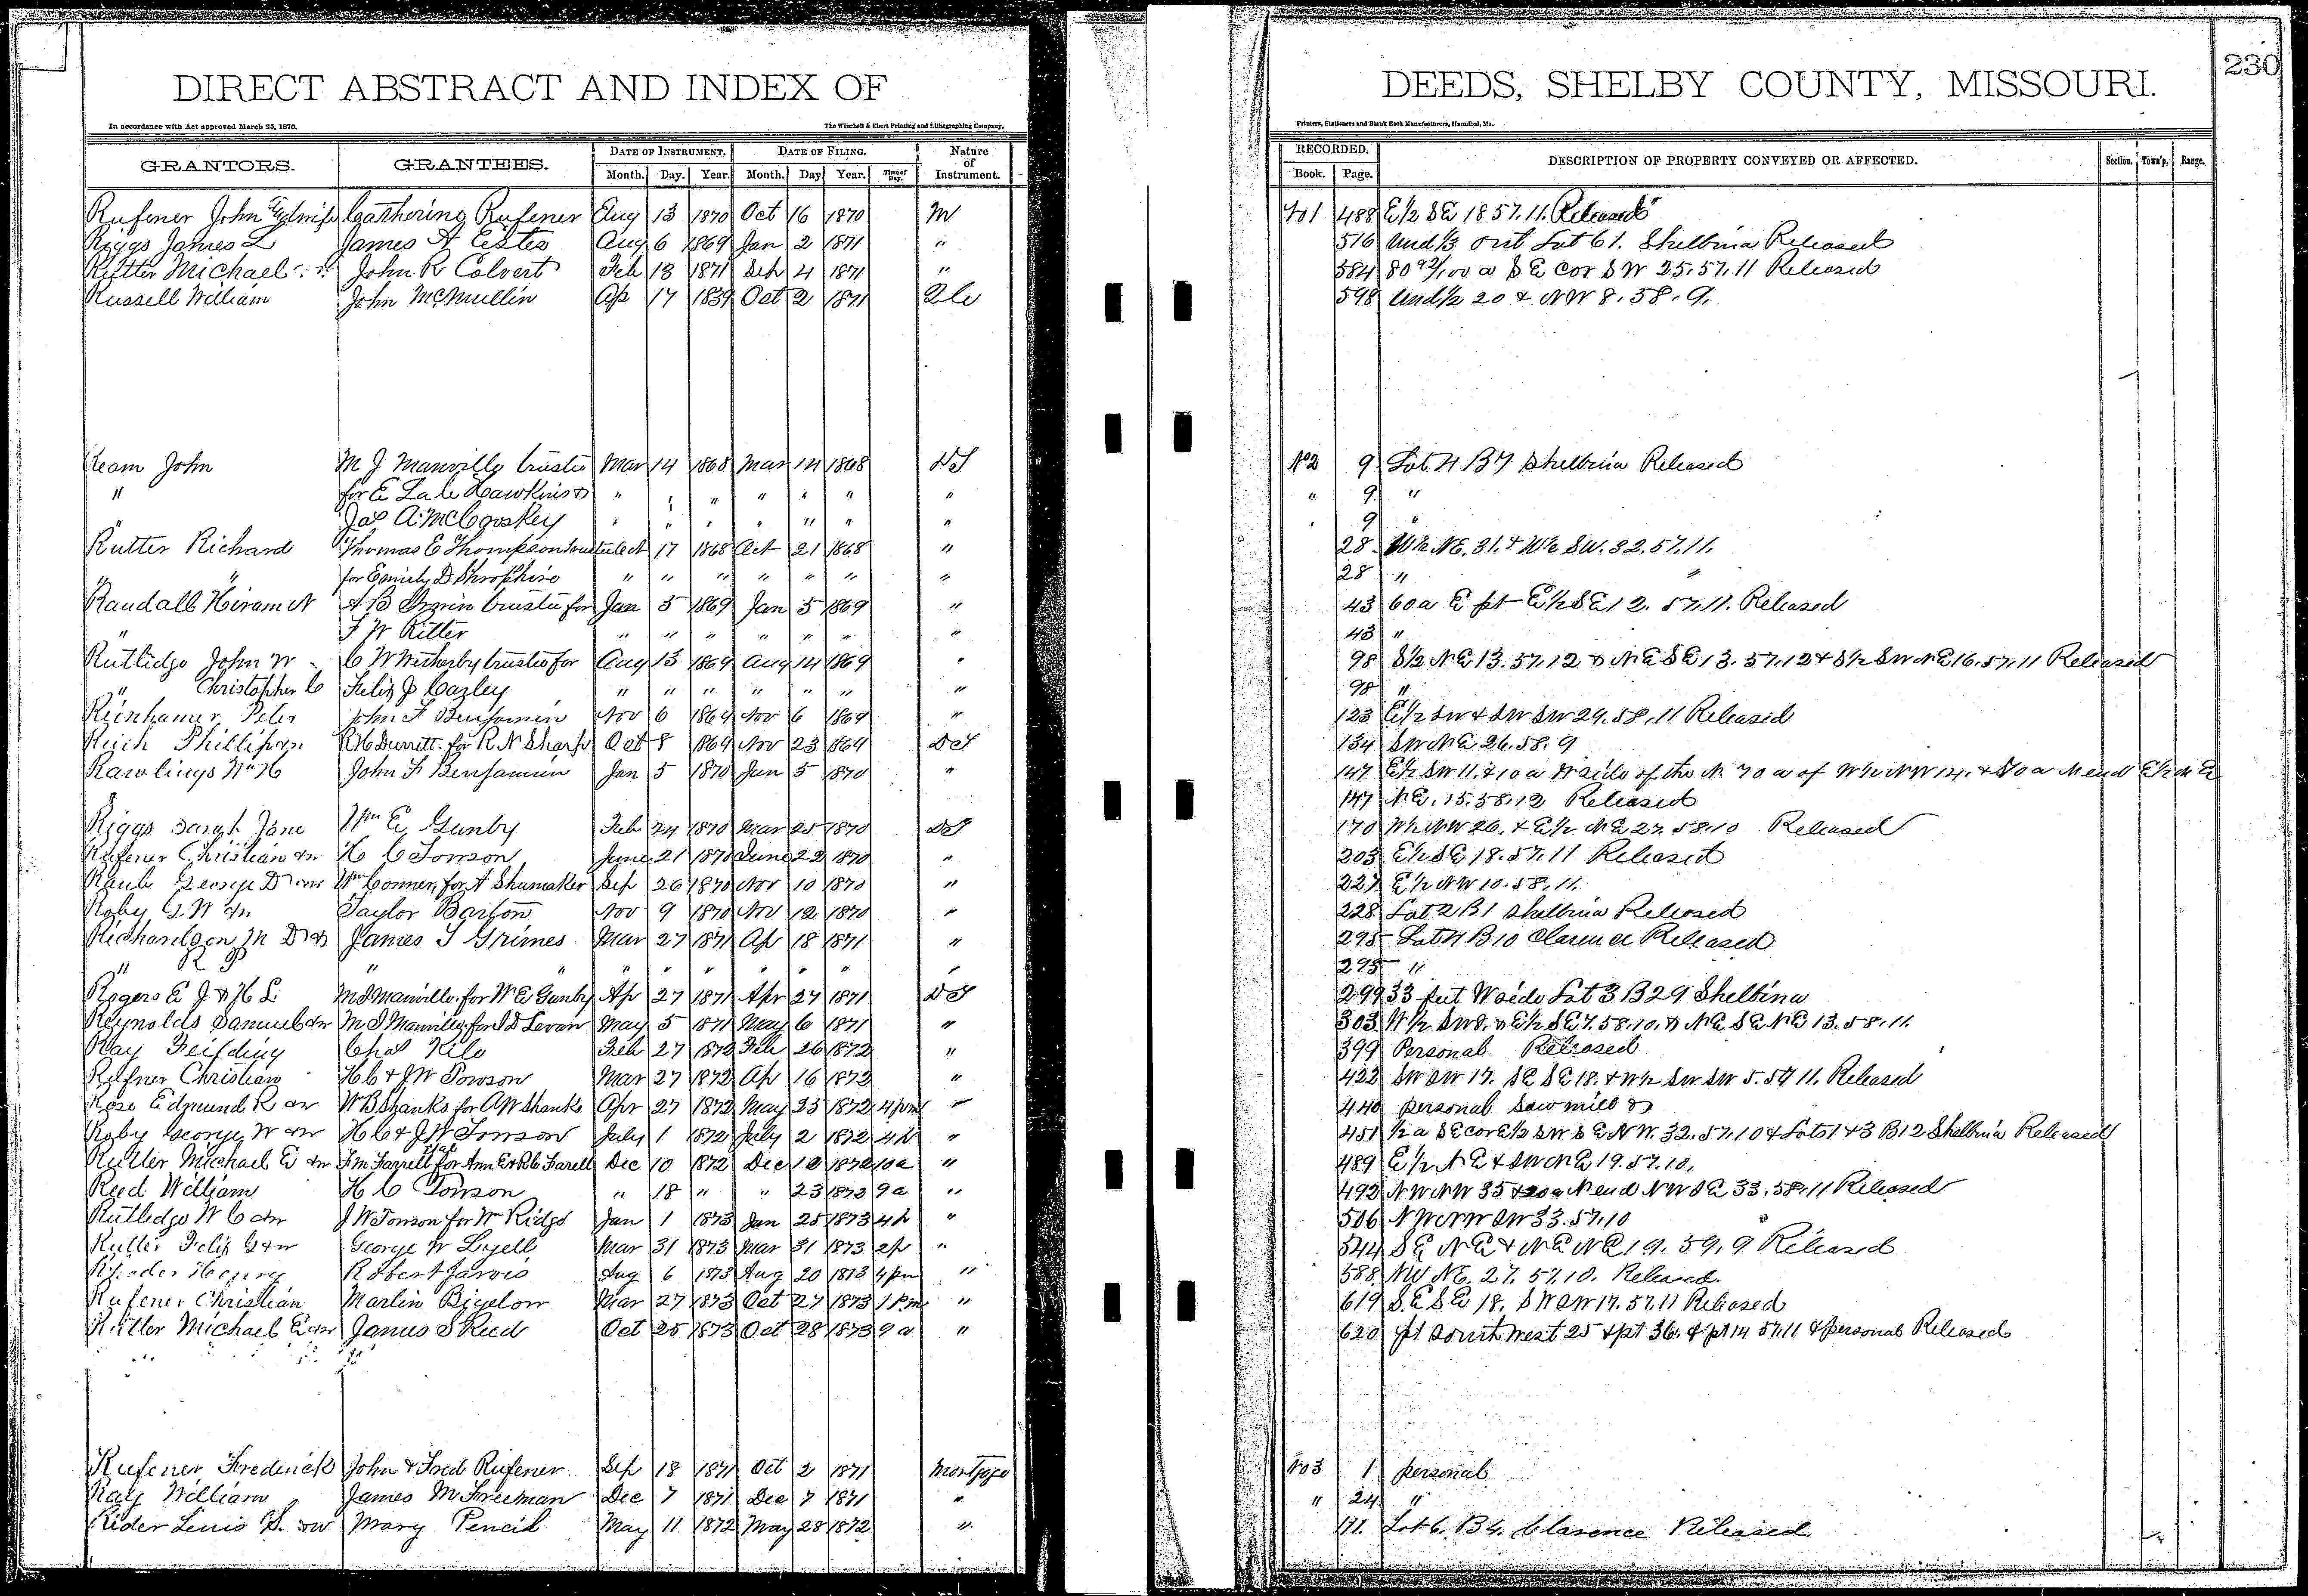 DIRECT ABSTRACT AND INDEX OF DEEDS, SHELBY COUNTY, MISSOURI. 230
In accordance with Act approved March 25, 1870. The Winchell & Ebert Printing and Lithographing Company, Printers, Stationers and Blank Book Manufacturers, Hannibal, Mo.
GRANTORS. GRANTEES. DATE OF INSTRUMENT. DATE OF FILING. Nature of Instrument. RECORDED. DESCRIPTION OF PROPERTY CONVEYED OR AFFECTED. Section. Town'p. Range.
Month. Day. Year. Month. Day Year. Time of Day. Book. Page.
Rufener John & wife Cathering Rufener Aug 13 1870 Oct 16 1870 M No 1 488 E½ SE 18 57.11. Released
Riggs James L James A Estes Aug 6 1869 Jan 2 1871 " 516 Und ⅓ out Lot 61. Shelbina Released
Rutter Michael John R Colvert Feb 18 1871 Sep 4 1871 " 584 80 92/100 a SE cor SW 25.57.11 Released
Russell William John McMullin Ap 17 1839 Oct 2 1871 598 Und ½ 20 & NW 8.58.9.
Ream John M J Manville trustee Mar 14 1868 Mar 14 1868 DT No 2 9 Lot 4 B 7 Shelbina Released
" for E Hawkins & " " " " " " " " 9 "
" Jas A. McCroskey " " " " " " " " 9 "
Rutter Richard Thomas E Thompson trustee Oct 17 1868 Oct 21 1868 " 28 W½ NE. 31. & W½ SW. 32.57.11.
" " for Emily D Shropshire " " " " " " " 28 " "
Randall Hiram N A B Irwin trustee for Jan 5 1869 Jan 5 1869 " 43 60 a E pt E½ SE 12. 57.11. Released
" F W Ritter " " " " " " " 43 "
Rutlidge John W C W Wetherby trustee for Aug 13 1869 Aug 14 1869 " 98 S½ NE 13.57.12 & NE SE 13.57.12 & S½ SW NE 16.57.11 Released
" Christopher C Felix J Cazley " " " " " " " 98 "
Reinhamer Peter John F Benjamin Nov 6 1869 Nov 6 1869 " 123 E½ SW & SW SW 29.58.11 Released
Phillip R H Durrett for R N Sharp Oct 8 1869 Nov 23 1869 DT 134 SW NE 26.58.9
Rawlings Wm H John F Benjamin Jan 5 1870 Jan 5 1870 " 147 E½ SW 11. & 10 a W side of the N 70 a of W½ NW 14. & 50 a N end E½ NE
147 NE. 15.58.12 Released
Riggs Sarah Jane Wm E Gunby Feb 24 1870 Mar 25 1870 DT 170 W½ NW 26. & E½ NE 27.58.10 Released
Rufener Christian & w H C Towson June 21 1870 June 22 1870 " 203 E½ SE 18.57.11 Released
Raub George D & w Wm Conner, for A Shumaker Sep 26 1870 Nov 10 1870 " 227 E½ NW 10.58.11.
Roby G W & w Taylor Barton Nov 9 1870 Nov 12 1870 " 228 Lot 2 B 1 Shelbina Released
Richardson M D & James S Grimes Mar 27 1871 Ap 18 1871 " 295 Lot 4 B 10 Clarence Released
" R P " " " " " " " " " 295 "
Rogers E J & H L M J Manville for W E Gunby Apr 27 1871 Apr 27 1871 DT 299 33 feet W side Lot 3 B 29 Shelbina
Reynolds Samuel & w M J Manville for J D Levan May 5 1871 May 6 1871 " 303 W½ SW 8. & E½ SE 7.58.10. & NE SE NE 13.58.11.
Ray Feilding Chas Kile Feb 27 1872 Feb 26 1872 " 399 Personal Released
Rufner Christian H C & J W Towson Mar 27 1872 Ap 16 1872 " 422 SW SW 17. SE SE 18. & W½ SW SW 5.57 11. Released
Rose Edmund R & w W B Shanks for A W Shanks Apr 27 1872 May 23 1872 4 pm " 440 personal Saw mill &
Roby George W & w H C & J W Towson July 1 1872 July 2 1872 4 p " 451 ½ a SE cor E½ SW SE NW. 32.57.10 & Lots 1 & 3 B 12 Shelbina Released
Rutter Michael E & w F M Farrell for Ann E & R C Farell Dec 10 1872 Dec 10 1872 10 a " 489 E½ NE & SW NE 19.57.10.
Reed William H C Towson " 18 " " 23 1873 9 a " 492 NW NW 35 & 20 a N end NW SE 33.58.11 Released
Rutledge W C & w J W Towson for Wm Ridge Jan 1 1873 Jan 25 1873 4 p " 506 NW NW SW 33.57.10
Rutter Felix G & w George W Lyell Mar 31 1873 Mar 31 1873 2 p " 544 SE NE & NE NE 19.59.9 Released
Rhodes Henry Robert Jarvis Aug 6 1873 Aug 20 1873 4 pm " 588 NW NE. 27. 57.10. Released.
Rufener Christian Martin Bigelow Mar 27 1873 Oct 27 1873 1 P.m. " 619 S.E SE 18. SW SW 17.57.11 Released
Rutter Michael E & w James S Reed Oct 25 1873 Oct 28 1873 9 a " 620 pt South West 25 & pt 36. & pt 14 57.11 & personal Released
Rufener Frederick John & Fred Rufener. Sep 18 1871 Oct 2 1871 Mortgage No 3 1 personal
Ray William James M Freeman Dec 7 1871 Dec 7 1871 " " 24 "
Rider Lewis H. & w Mary Pencil May 11 1872 May 28 1872 " 171. Lot 6. B 4. Clarence Released.